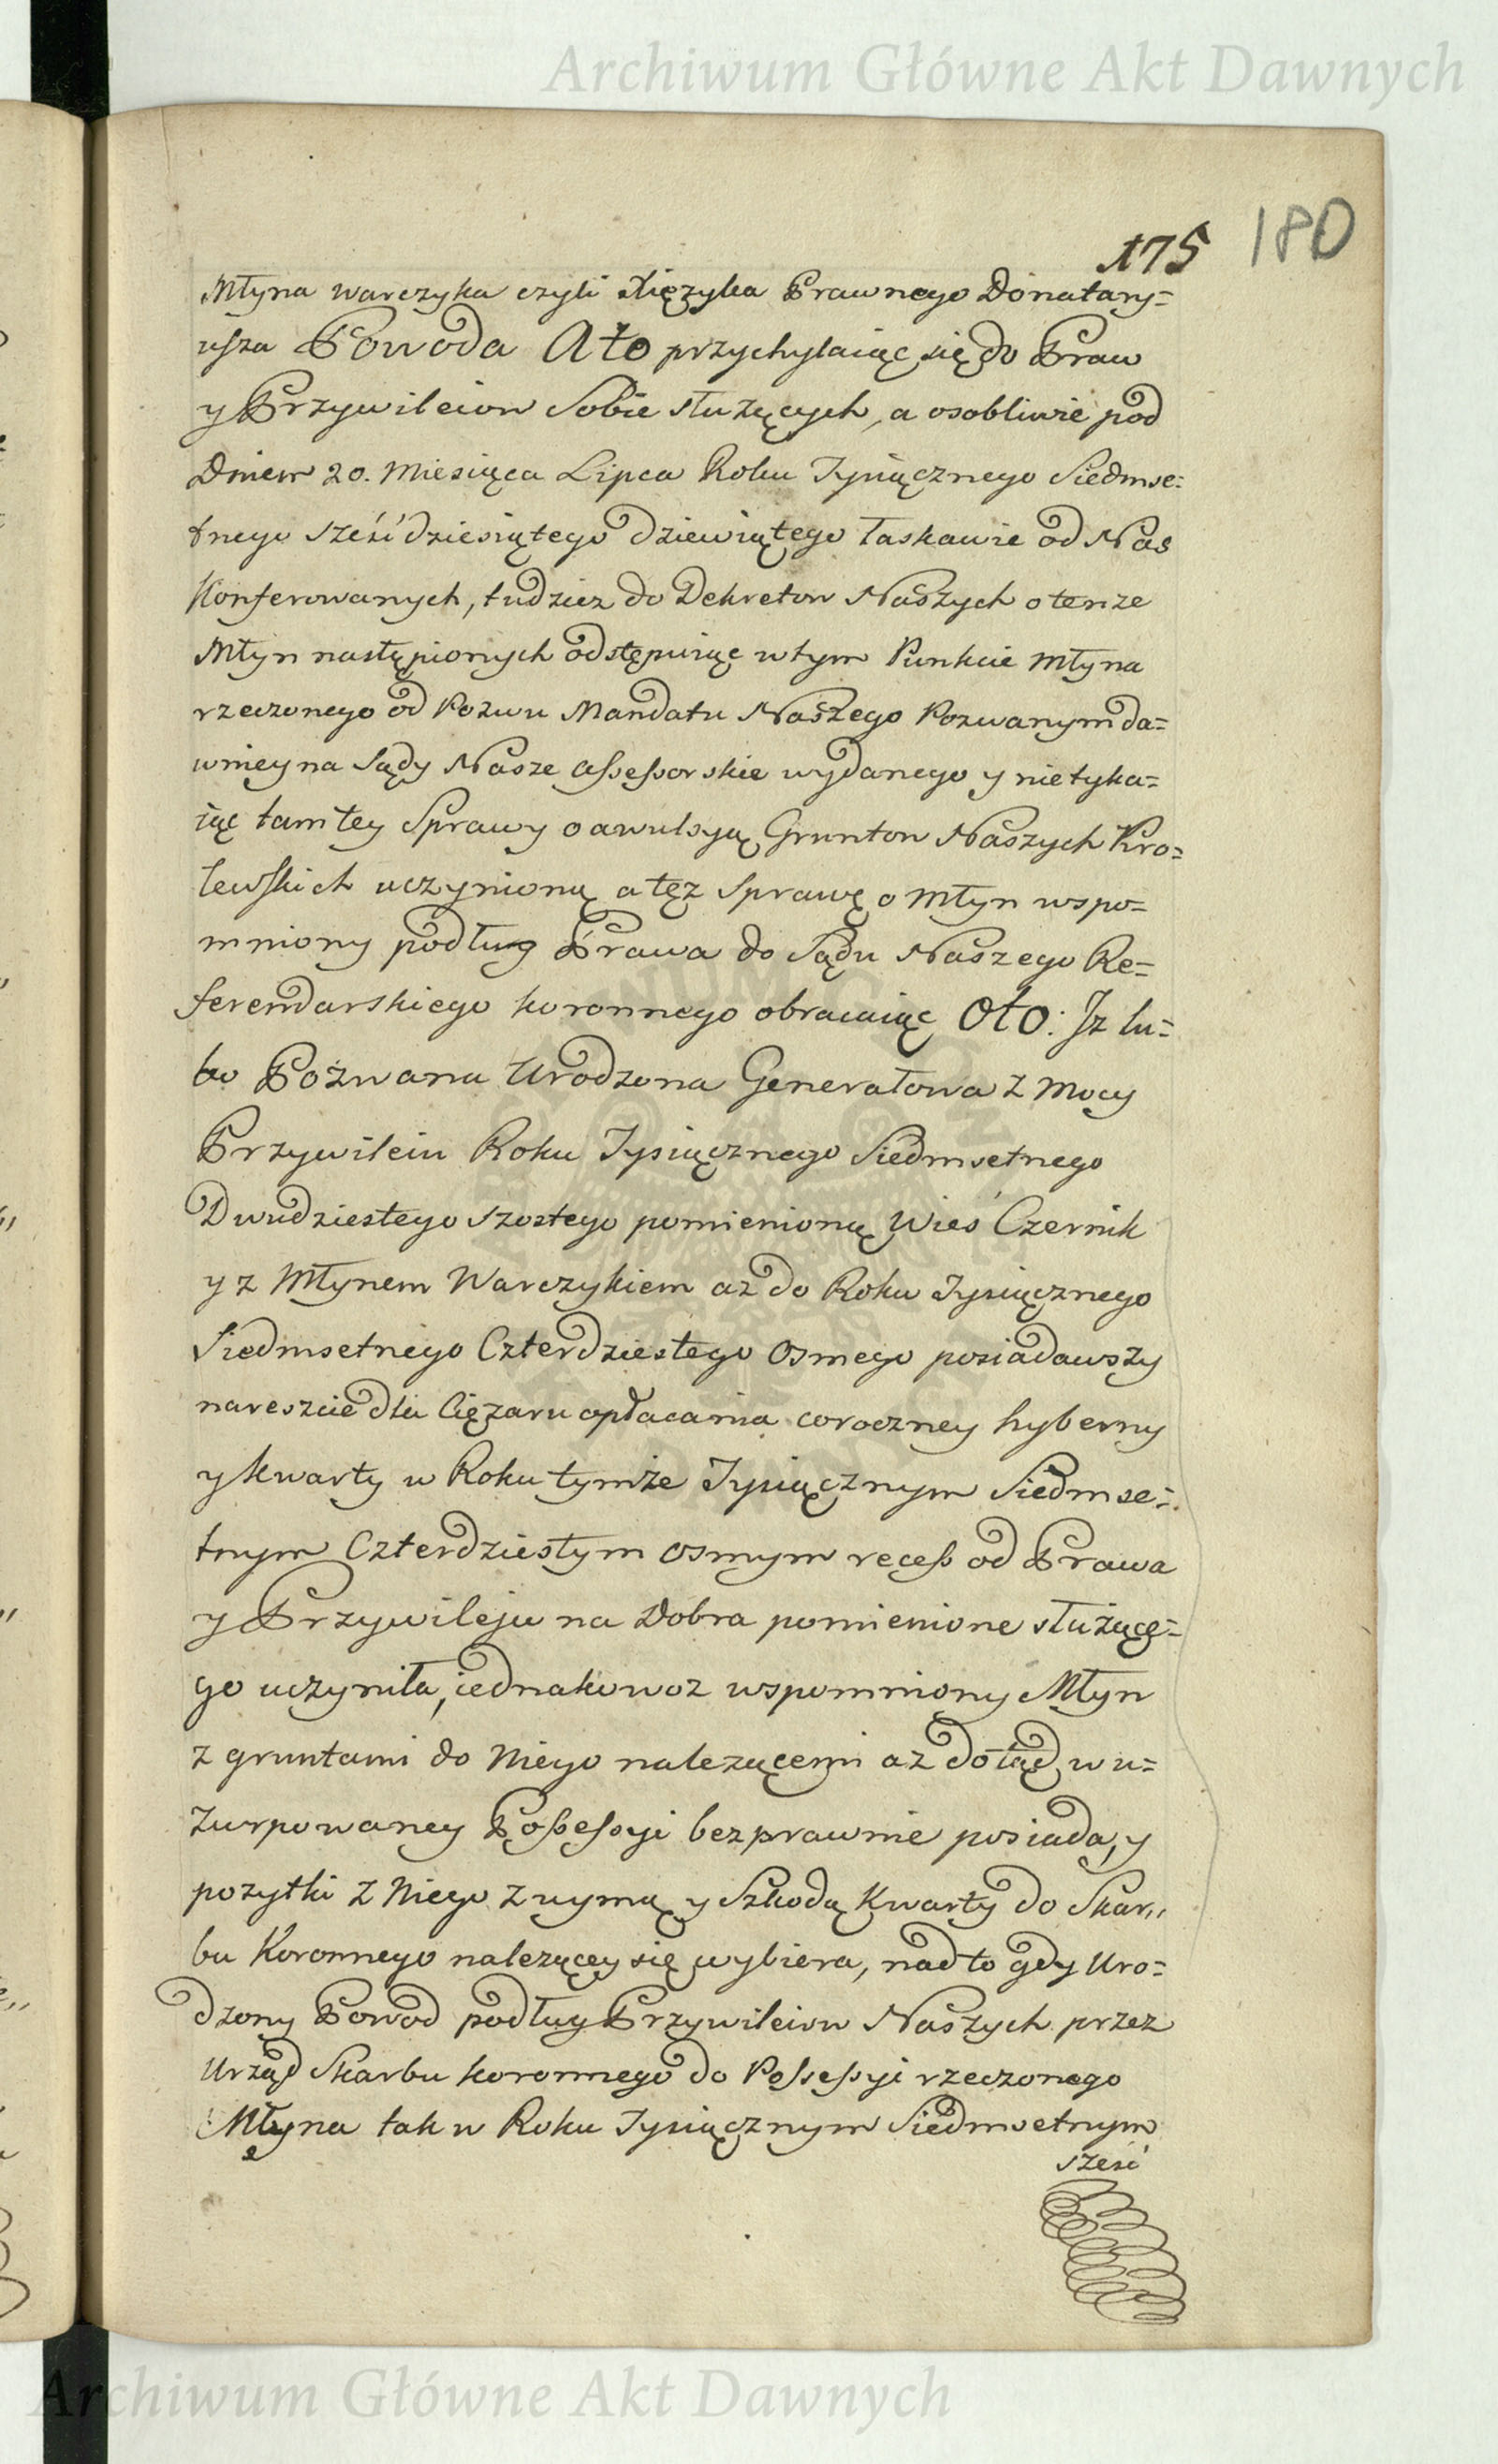 Archiwum Główne Akt Dawnych
180
175
Młyna Warczyka czyli Xiężyka Prawnego Donatary=
usza Powoda Ato przychylaiąc się do Praw
y Przywileiow Sobie służących, a osobliwie pod
Dniem 20. Miesiąca Lipca Roku Tysiącznego Siedmse=
tnego sześćdziesiątego dziewiątego łaskawie od Nas
Konferowanych, tudziez do Dekretow Naszych o tenze
Młyn nastąpionych odstępuiąc w tym Punkcie Młyna
rzeczonego od Pozwu Mandatu Naszego Pozwanym da=
wniey na Sądy Nasze Assessorskie wydanego y nietyka=
iąc tamtey Sprawy o awulsyą Gruntow Naszych Kro=
lewskich uczynioną a tęż Sprawę o Młyn wspo=
mniony podług Prawa do Sądu Naszego Re=
ferendarskiego koronnego obracaiąc Oto: Jz lu=
bo Pozwana Urodzona Generałowa z Mocy
Przywileiu Roku Tysiącznego Siedmsetnego
Dwudziestego szostego pomienioną Wieś Czernik
y z Młynem Warczykiem az do Roku Tysiącznego
Siedmsetnego Czterdziestego Osmego posiadawszy
nareszcie dla Ciężaru opłacania coroczney hyberny
y kwarty w Roku tymże Tysiącznym Siedmse=
tnym Czterdziestym osmym recess od Prawa
y Przywileju na Dobra pomienione służące=
go uczyniła, iednakowoz wspomniony Młyn
z gruntami do Niego nalezącemi az dotąd w u=
zurpowaney Possessyi bezprawnie posiada, y
pozytki z Niego z uymą y Szkodą Kwarty do Skar„
bu Koronnego nalezącey się wybiera, nadto gdy Uro=
dzony Powod podług Przywileiow Naszych przez
Urząd Skarbu koronnego do Possessyi rzeczonego
Młyna tak w Roku Tysiącznym Siedmsetnym
sześć
Archiwum Główne Akt Dawnych